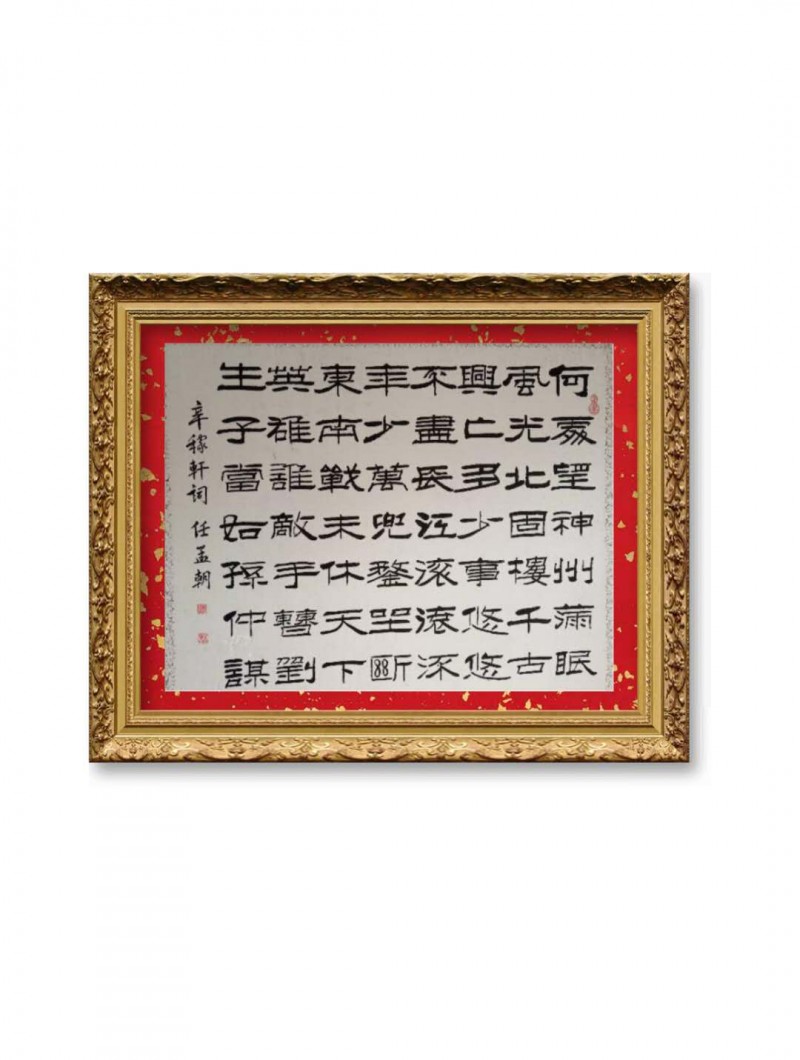 何處望神州滿眼
風光北固樓千古
興亡多少事悠悠
不盡長江滚滚流
年少萬兜鍪坐斷
東南戰未休天下
英雄誰敵手曹劉
生子當如孫仲謀
辛稼軒詞 任孟朝